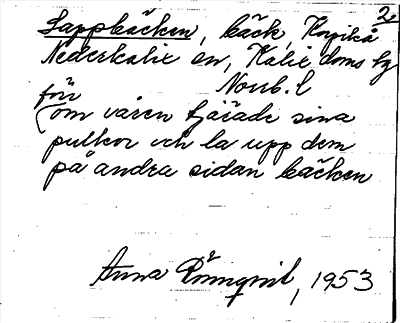 2
Lappbäcken, bäck, Korpikå
Nederkalix sn, Kalix doms hg
Norrb. l
för
(om våren tjärade sina
pulkor och la upp dem
på andra sidan bäcken
Anna Rönnqvist, 1953